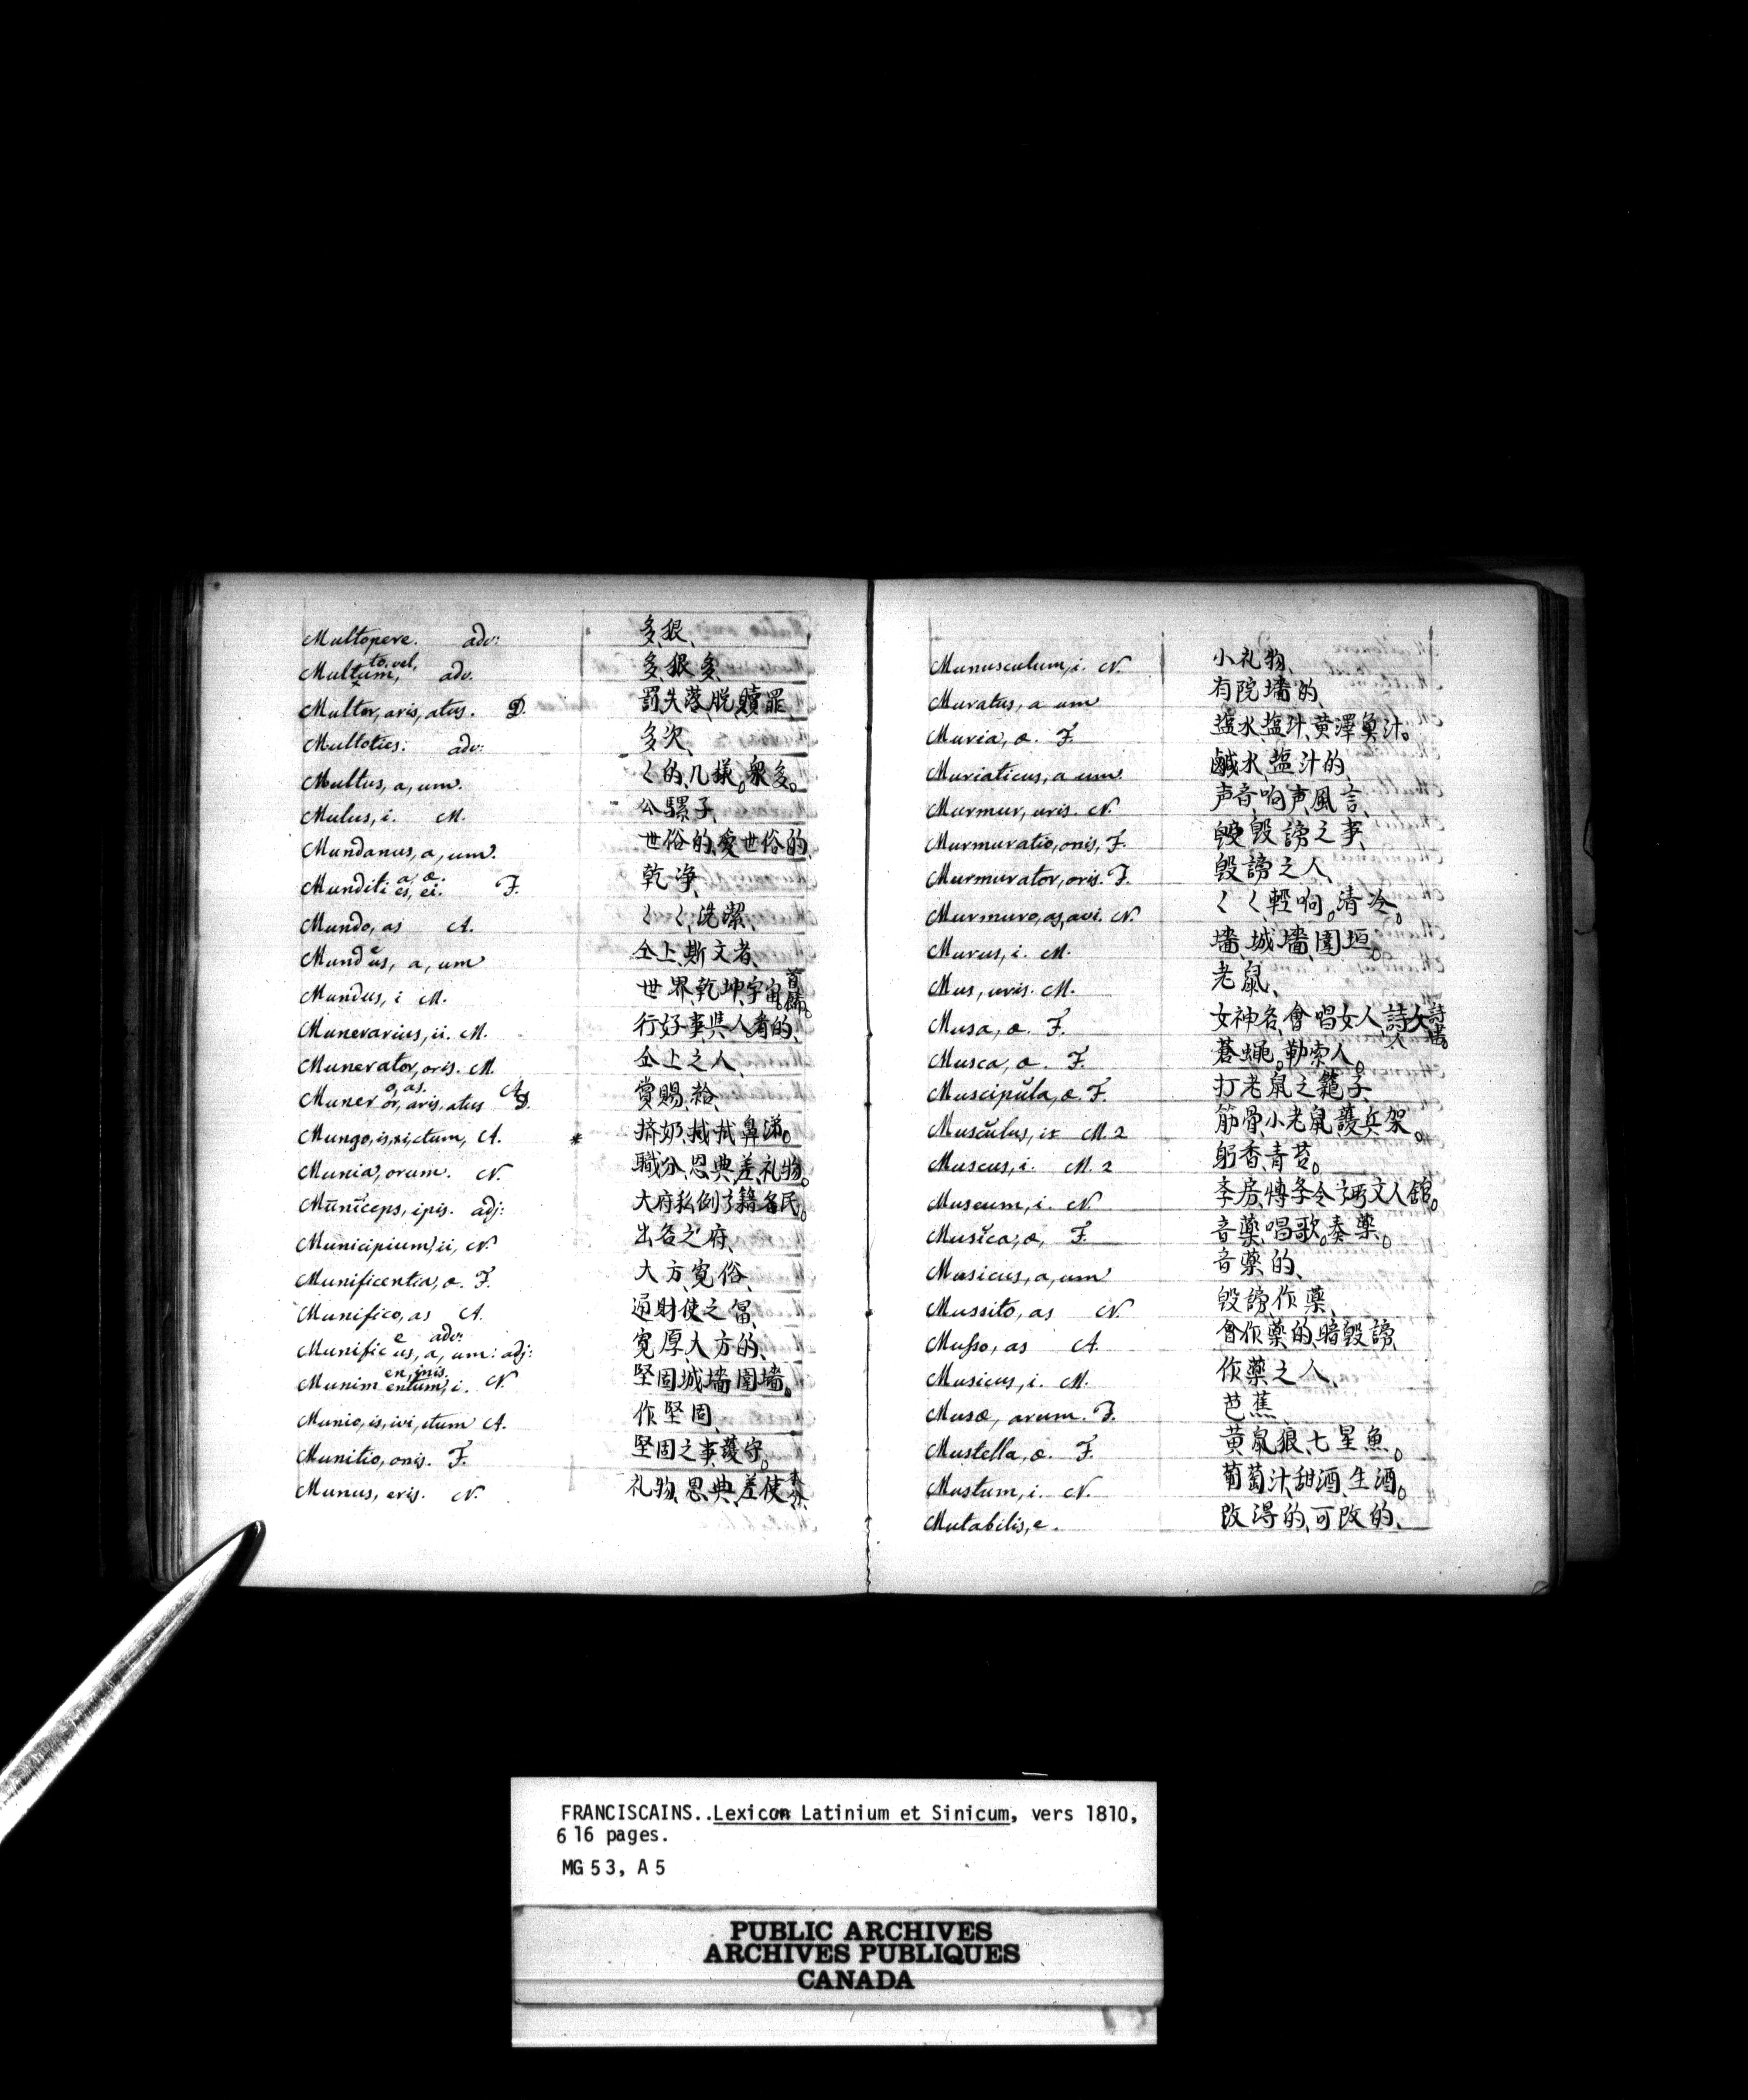 Multopere. adv: 多、狠、
Multum, to, vel, adv. 多、狠多、
Multor, aris, atus. D. 罰、失落、脱、贖罪、
Multoties: adv: 多次、
Multus, a, um. く的、几樣。衆多。
Mulus, i. M. 公騾子、
Mundanus, a, um. 世俗的、愛世俗的、
Munditi a, æ. es, ei. F. 乾净、
Mundo, as A. くく、洗潔、
Mundus, e a, um 仝上、斯文者、
Mundus, i M. 世界、乾坤、宇宙。首餙。
Munerarius, ii. M. 行好事與人看的、
Munerator, oris. M. 仝上之人、
Muner o, as. or, aris, atus A. D. 賞賜、給、
Mungo, is, xi, ctum, A. * 挤奶、
Munia, orum. N. 職分、恩典、差、礼物。
Municeps, ipis. adj:
Municipium, ii, N. 出各之府、
Munificentia, æ. F. 大方、寛俗、
Munifico, as A. 通財使之富、
Munific e adv: us, a, um: adj: 寛厚、大方的、
Munim en, inis. entum, i. N. 堅固、城墻、圍墻。
Munio, is, ivi, itum A. 作堅固、
Munitio, onis. F. 堅固之事、護守。
Munus, eris. N. 礼物、恩典、差使、本分、
Munusculum, i. N. 小礼物、
Muratus, a um 有院墻的、
Muria, æ. F. 塩水、塩汁、黄澤魚汁。
Muriaticus, a um 鹹水塩汁的、
Murmur, uris. N. 声音、响声、風言、
Murmuratio, onis, F. 毁謗之事、
Murmurator, oris. F. 毁謗之人、
Murmuro, as, avi. N. くく輕响。清冷。
Murus, i. M. 墻、城墻、圍垣。
Mus, uris. M. 老鼠、
Musa, æ. F. 女神名、會唱女人、詩
Musca, æ. F. 蒼蠅。勒索人。
Muscipula, æ. F. 打老鼠之籠子、
Musculus, i M. 2 筋骨、小老鼠、護兵架。
Muscus, i. M. 2 躬香、青苔。
Museum, i. N.
Musica, æ, F. 音藥、唱歌。奏藥。
Musicus, a, um 音藥的、
Mussito, as N. 毁謗、作藥、
Musso, as A. 會作藥的、暗毁謗、
Musicus, i. M. 作藥之人、
Musæ, arum. F. 芭蕉
Mustella, æ. F. 黄鼠狼、七星魚。
Mustum, i. N. 葡萄汁、甜酒、生酒。
Mutabilis, e. 改得的、可改的、
FRANCISCAINS..Lexicon Latinium et Sinicum, vers 1810,
616 pages.
MG 53, A 5
PUBLIC ARCHIVES
ARCHIVES PUBLIQUES
CANADA